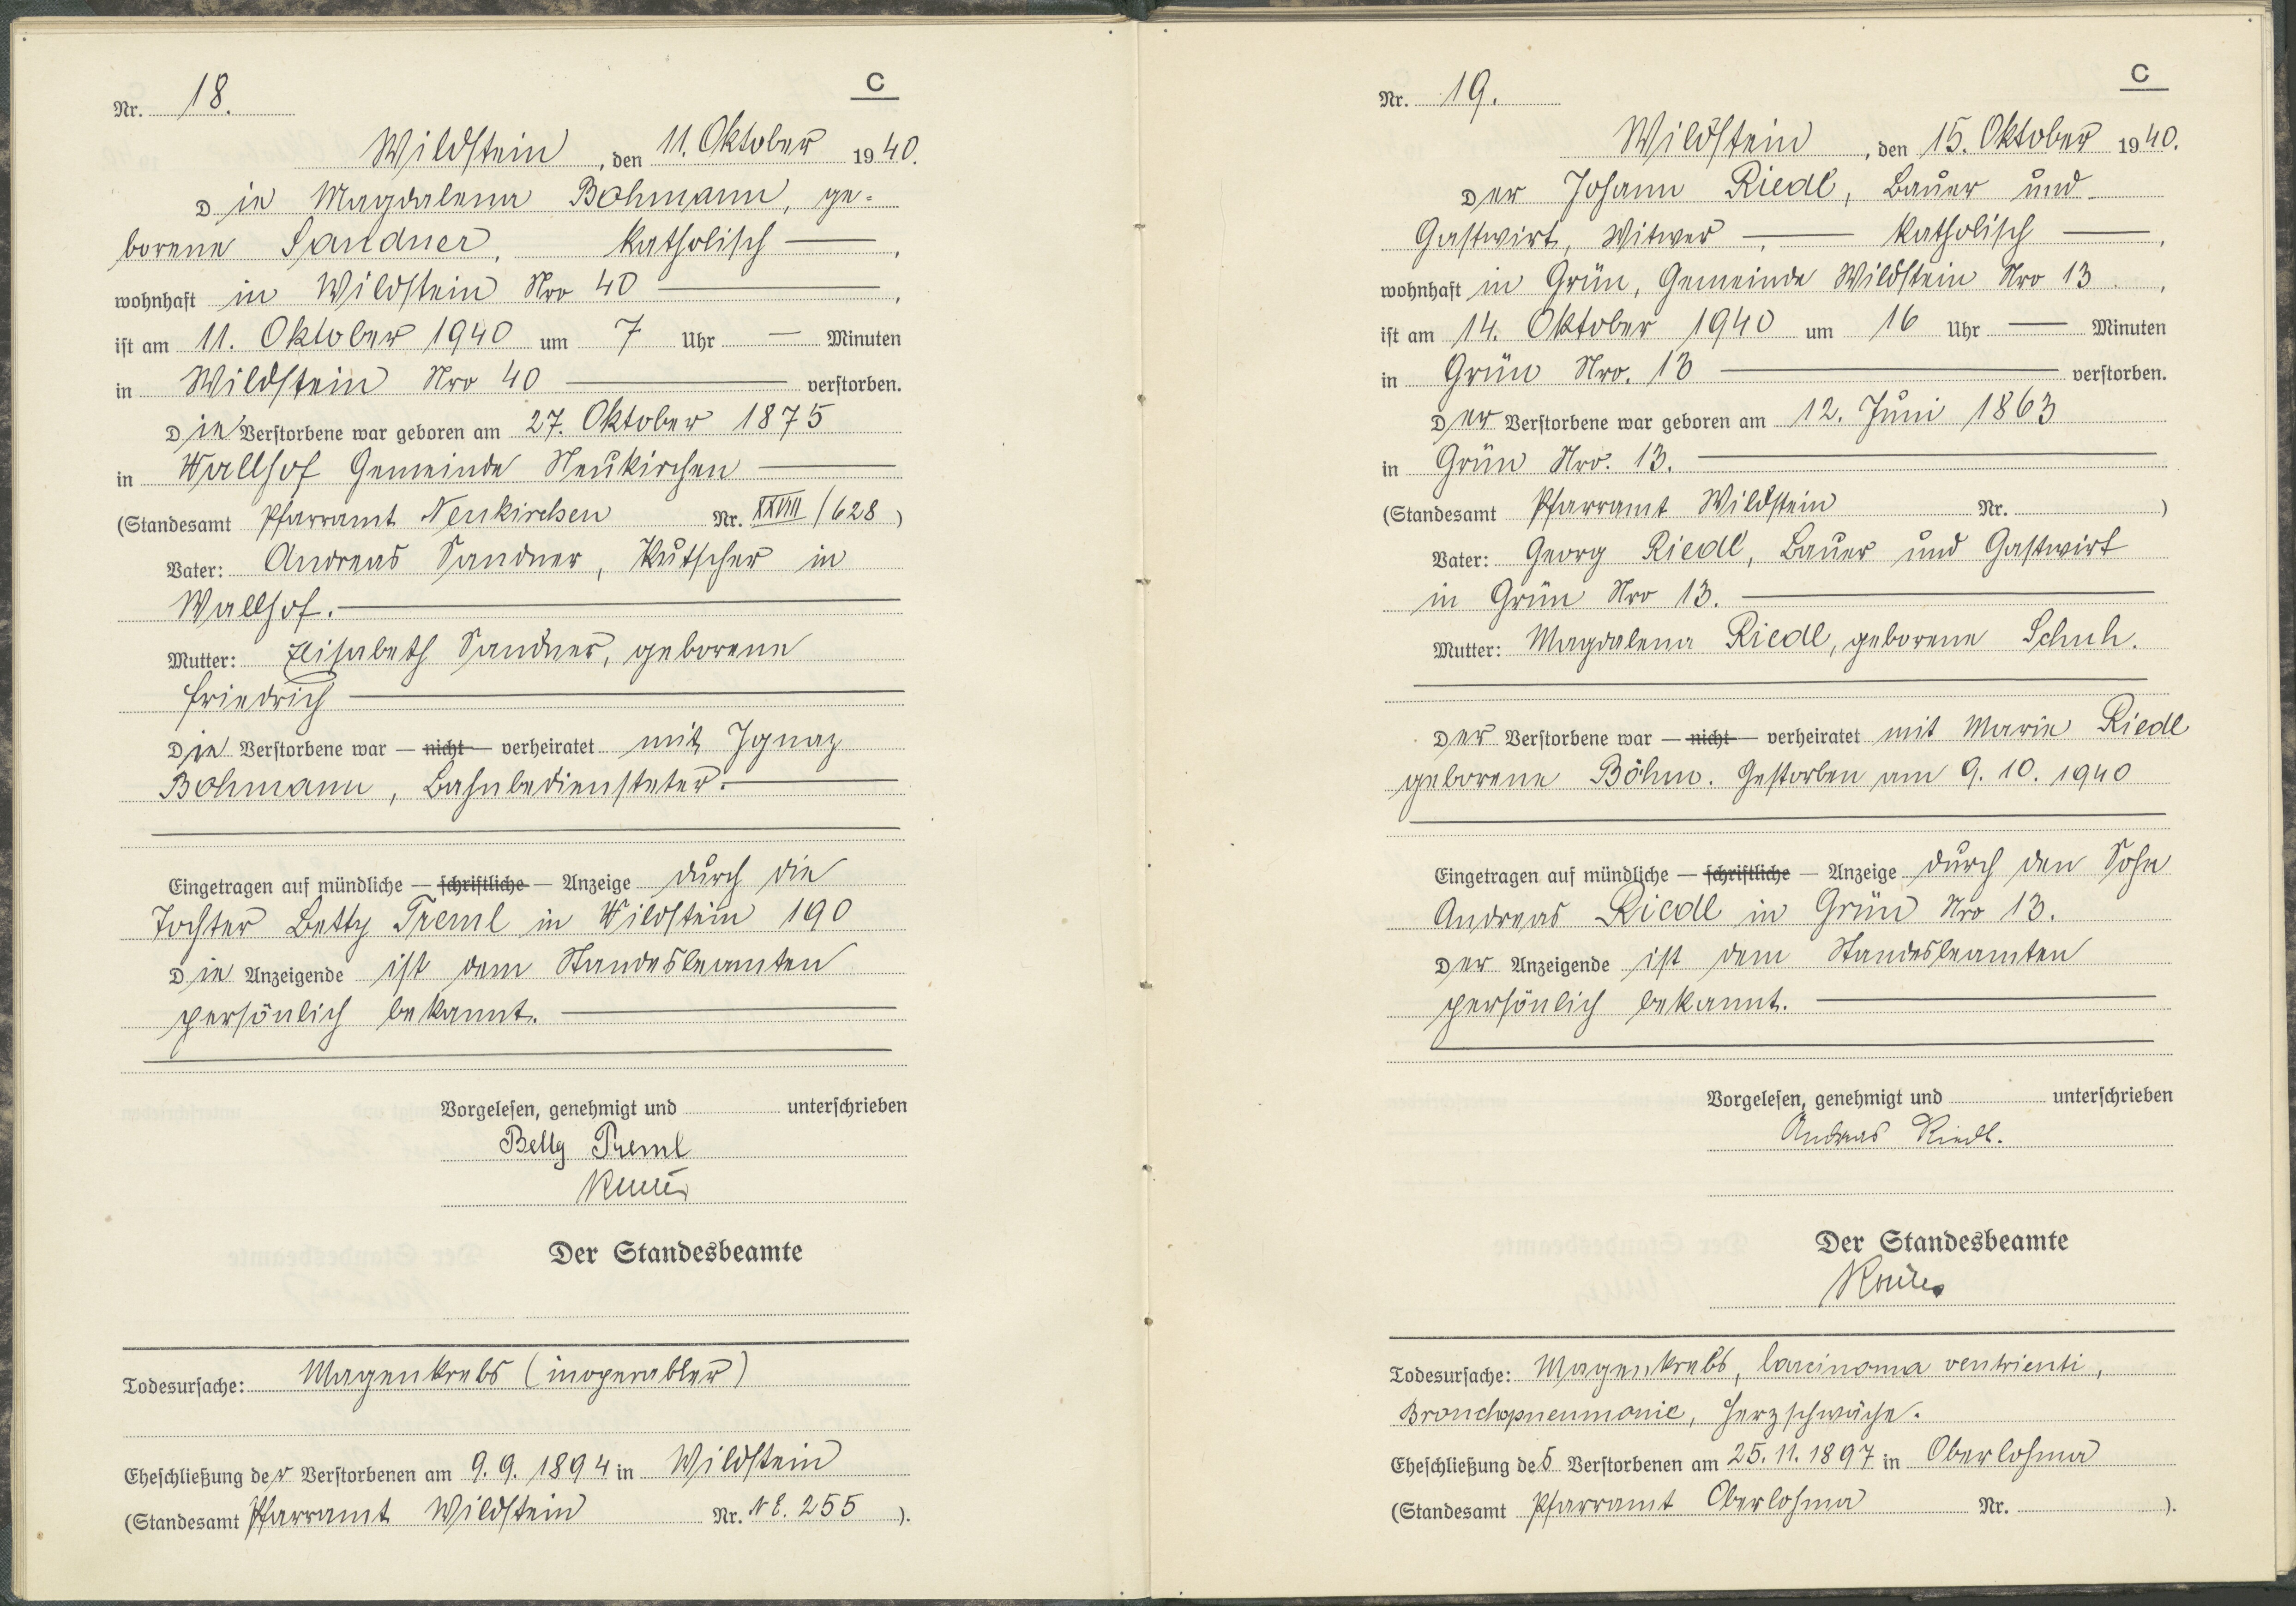 C
Nr. 18.
Wildstein, den 11. Oktober 1940.
Die Magdalena Bohmann, ge-
borene Sandner, katholisch —,
wohnhaft in Wildstein Nro 40 —,
ist am 11. Oktober 1940 um 7 Uhr — Minuten
in Wildstein Nro 40 — verstorben.
Die Verstorbene war geboren am 27. Oktober 1875
in Wallhof Gemeinde Neukirchen —
(Standesamt Pfarramt Neukirchen Nr. XXVIII/628)
Vater: Andreas Sandner, Kutscher in
Wallhof. —
Mutter: Elisabeth Sandner, geborene
Friedrich —
Die Verstorbene war — nicht — verheiratet mit Ignaz
Bohmann, Bahnbediensteter. —
Eingetragen auf mündliche — schriftliche — Anzeige durch die
Tochter Betty Treml in Wildstein 190
Die Anzeigende ist dem Standesbeamten
persönlich bekannt. —
Vorgelesen, genehmigt und unterschrieben
Betty Treml
Der Standesbeamte
Todesursache: Magenkrebs (inoperabler)
Eheschließung der Verstorbenen am 9. 9. 1894 in Wildstein
(Standesamt Pfarramt Wildstein Nr. N E. 255).
C
Nr. 19.
Wildstein, den 15. Oktober 1940.
Der Johann Riedl, Bauer und
Gastwirt, Witwer —, — katholisch —,
wohnhaft in Grün, Gemeinde Wildstein Nro 13,
ist am 14. Oktober 1940 um 16 Uhr — Minuten
in Grün Nro. 13 — verstorben.
Der Verstorbene war geboren am 12. Juni 1863
in Grün Nro. 13. —
(Standesamt Pfarramt Wildstein Nr. )
Vater: Georg Riedl, Bauer und Gastwirt
in Grün Nro 13. —
Mutter: Magdalena Riedl, geborene Schuh.
Der Verstorbene war — nicht — verheiratet mit Marie Riedl
geborene Böhm. Gestorben am 9. 10. 1940
Eingetragen auf mündliche — schriftliche — Anzeige durch den Sohn
Andreas Riedl in Grün Nro 13.
Der Anzeigende ist dem Standesbeamten
persönlich bekannt. —
Vorgelesen, genehmigt und unterschrieben
Andreas Riedl.
Der Standesbeamte
Todesursache: Magenkrebs, Carcinoma ventrienti,
Bronchopneumonie, Herzschwäche.
Eheschließung des Verstorbenen am 25. 11. 1897 in Oberlohma
(Standesamt Pfarramt Oberlohma Nr. ).